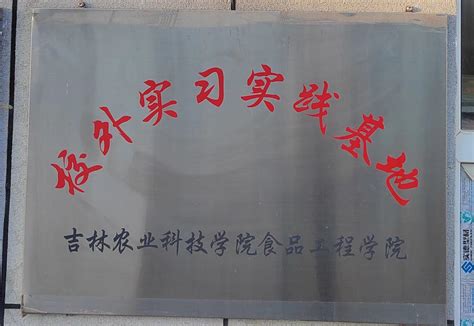 校外实习实践基地
吉林农业科技学院食品工程学院